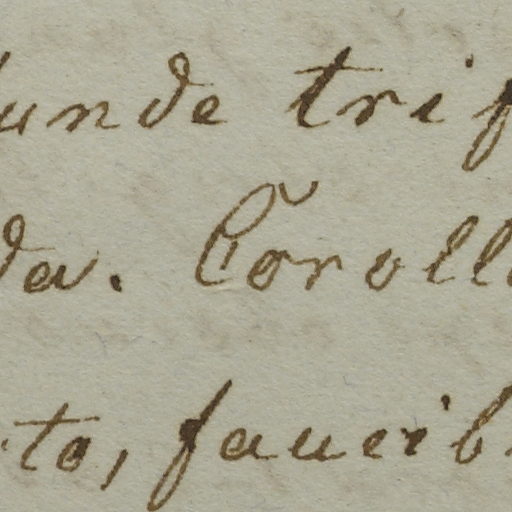 unde trif
da. Coroll
to, faucib